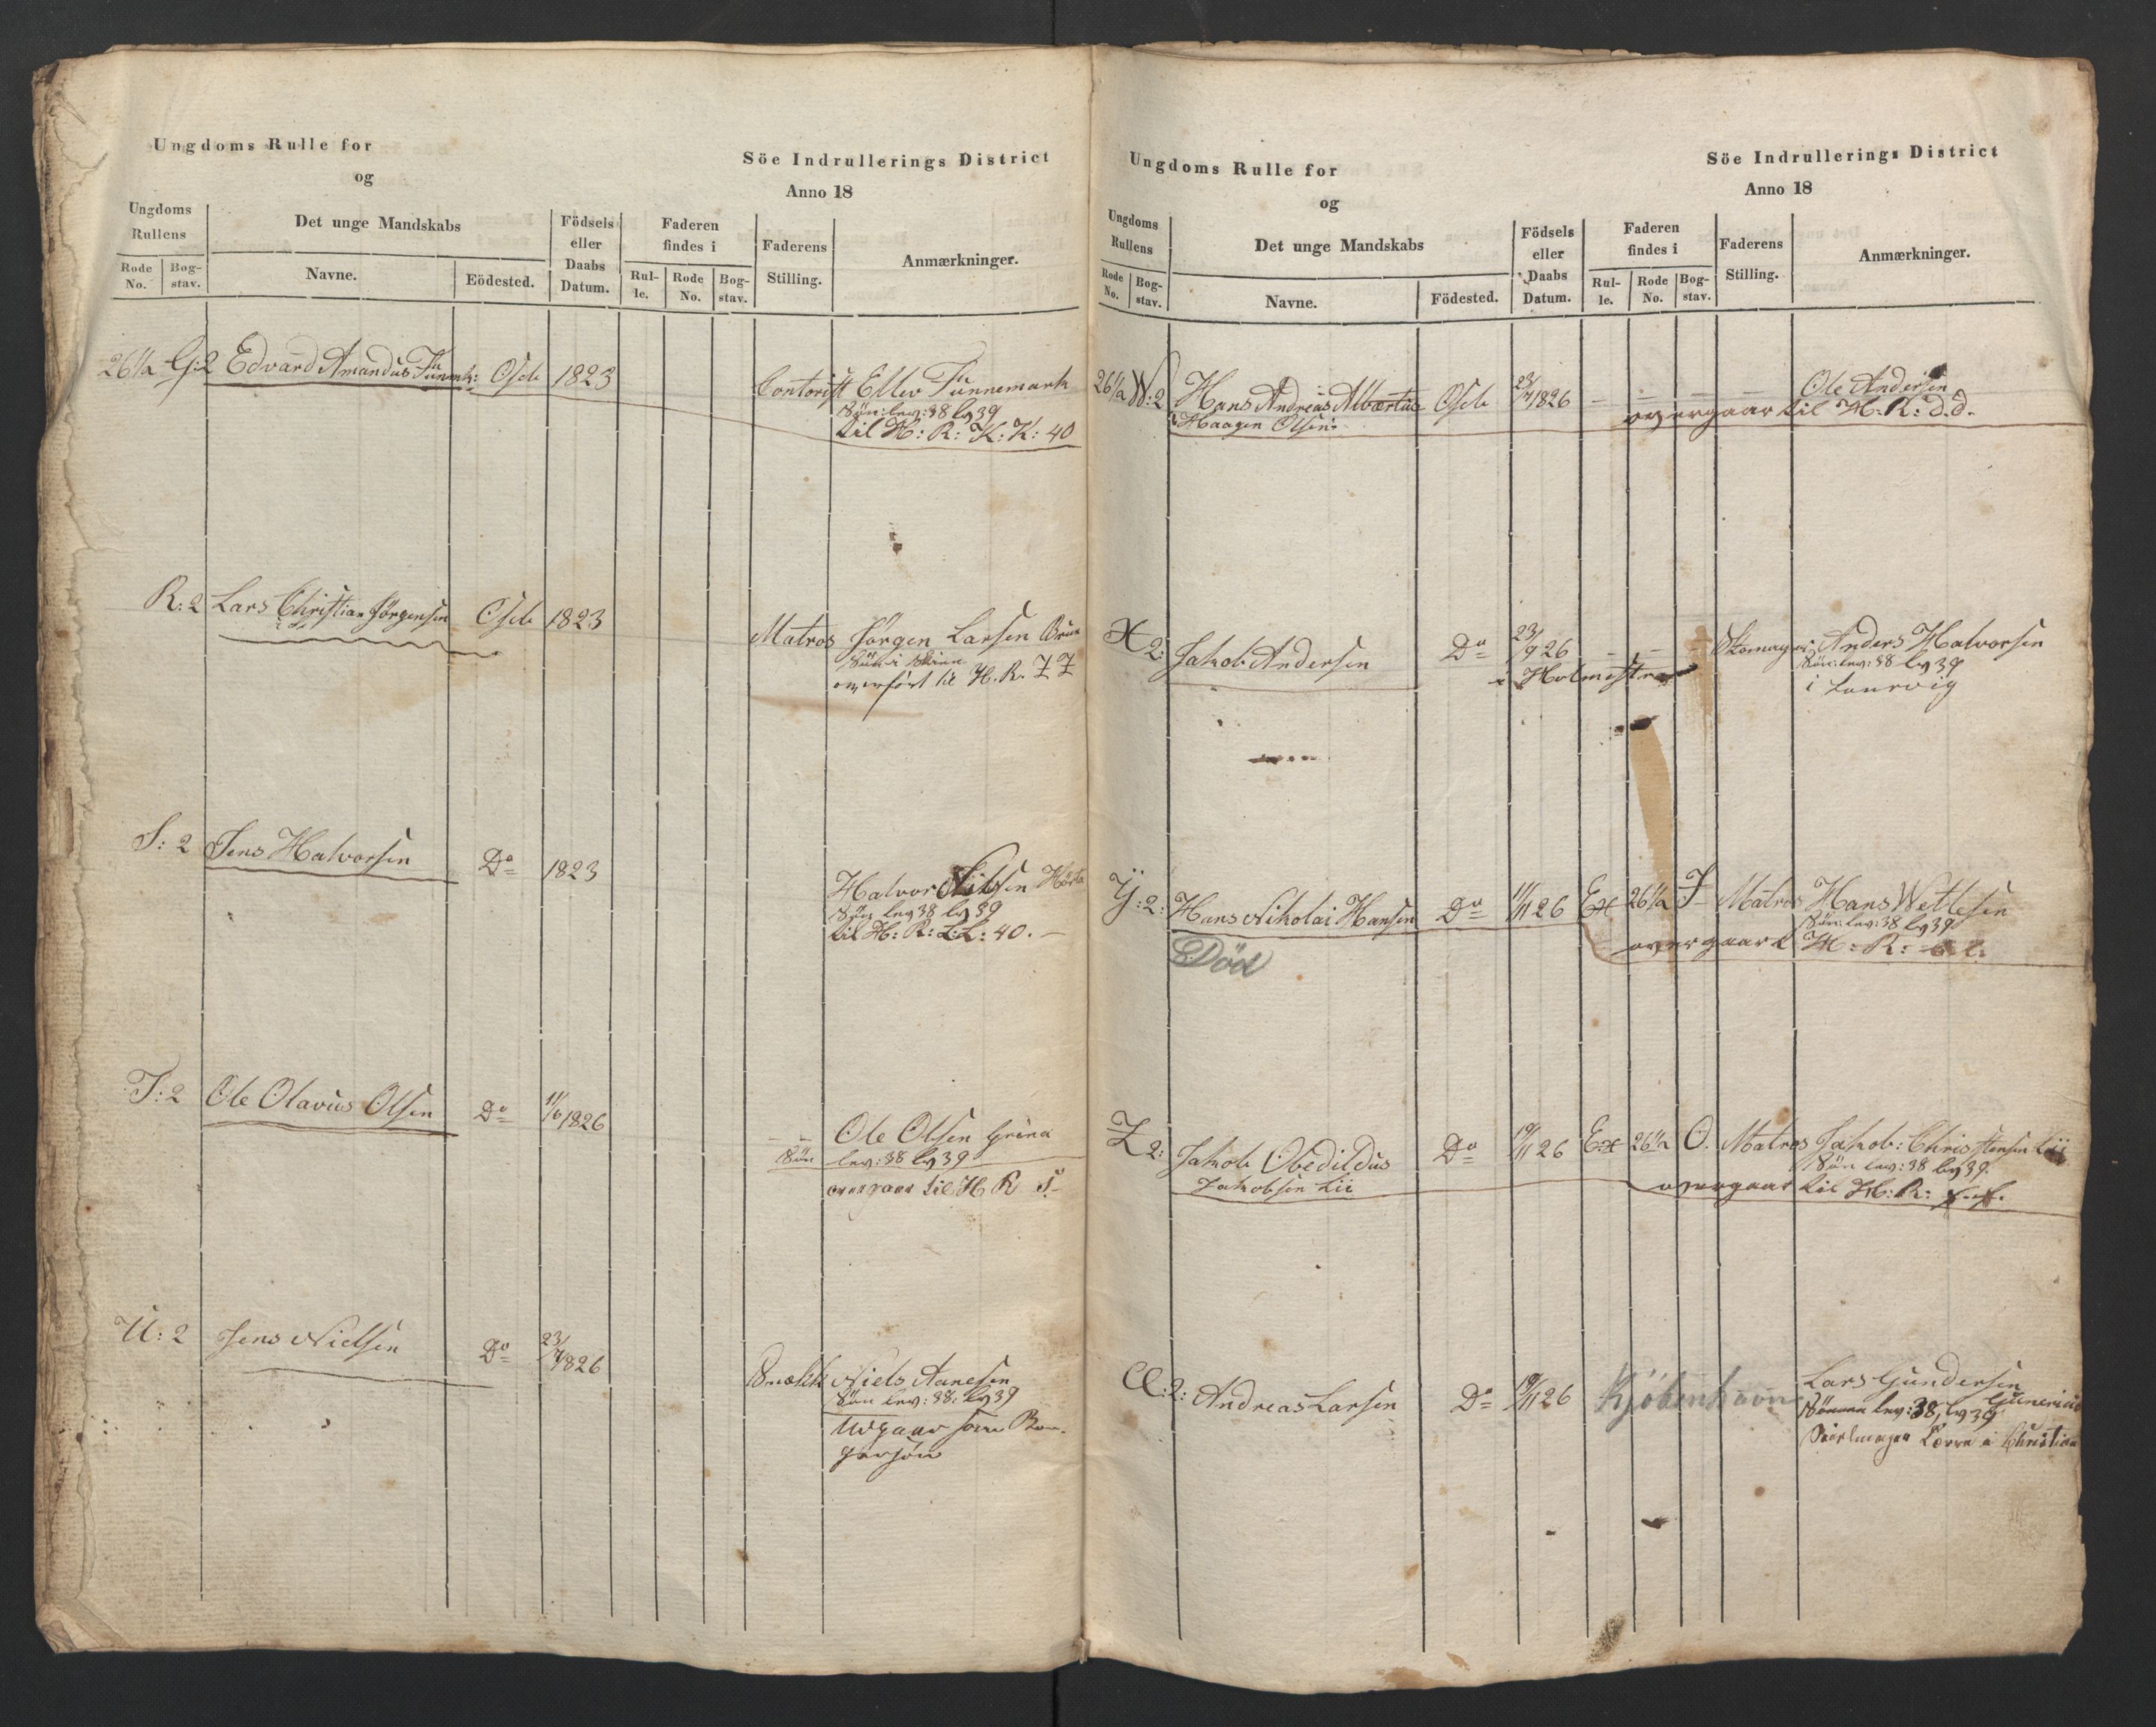 Ungdoms Rulle for
og
Söe Indrullerings District
Anno 18
Ungdoms Rullens
Rode No.
Bog- stav.
Det unge Mandskabs
Navne.
Eödested.
Födsels eller Daabs Datum.
Faderen findes i
Rul- le.
Rode No.
Bog- stav.
Faderens Stilling.
Anmærkninger.
26 1/2 Q:2 Edvard Amandus Tünmk: Osch 1823 Contorist Eller Tünnemark
Sön: lev: 38 lv 39
til H: R: K: K: 40
R: 2 Lars Christian Jörgensen Osch 1823 Matros Jörgen Larsen
overfört til H. R. Z Z
S: 2 Jens Halvorsen Do 1823 Halvor Nilsen
Sön lev 38 lv 39
til H: R: L: L: 40.
T: 2 Ole Olavus Olsen Do 1826 — — Ole Olsen
Sön lev: 38 lv 39
overgaar til H R
U: 2 Jens Nielsen Do 23/7 1826 Niels Aanesen
Sön lev: 38. lv 39
Udgaar som
Ungdoms Rulle for
og
Söe Indrullerings District
Anno 18
Ungdoms Rullens
Rode No.
Bog- stav.
Det unge Mandskabs
Navne.
Födested.
Födsels eller Daabs Datum.
Faderen findes i
Rul- le.
Rode No.
Bog- stav.
Faderens Stilling.
Anmærkninger.
26 1/2 W: 2 Hans Andreas Albertus Osch 23/7 1826 — — — — Ole Andersen
Haagen Olsen overgaar til H. R: d. d.
X 2: Jakob Andersen Do 23/9 26 — — — Skomager Anders Halvorsen
Sön: lev: 38 lv 39
i Holmestrand
i Laurvig
Y: 2: Hans Nikolai Hansen Do 11/11 26 Ex 26 1/2 F Matros Hans Wetlesen
Sön: lev: 38 lv 39
overgaar t H: R:
Död
Z 2: Jakob Obedildus Do 19/11 26 Ex 26 1/2 O. Matros Jakob: Christensen Lii
Jakobsen Lii
Sön lev: 38 lv 39.
overgaar til H: R: f. f.
Æ: 2: Andreas Larsen Do 19/11 26 Kjöbenhavn Lars Gundersen
lev: 38, lv 39
i Christian